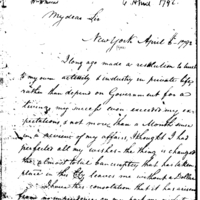 6 April 1792
My dear Sir
New York April 6th 1792
I long ago made a resolution to trust
to my own activity & industry in private life
rather than depend on Government for a
living, my success even exceeded my ex-
pectations & not more than a Month since
on a review of my affairs, I thought I had
perfected all my wishes. the thing is changed
the almost total bankruptcy that has taken
place in this City leaves me without a Dollar
I have this consolation that it has arisen
from no imprudence on my part